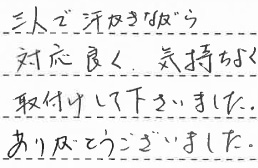 三人で汗かきながら
対応良く、気持ちよく
取付けして下さいました。
ありがとうございました。